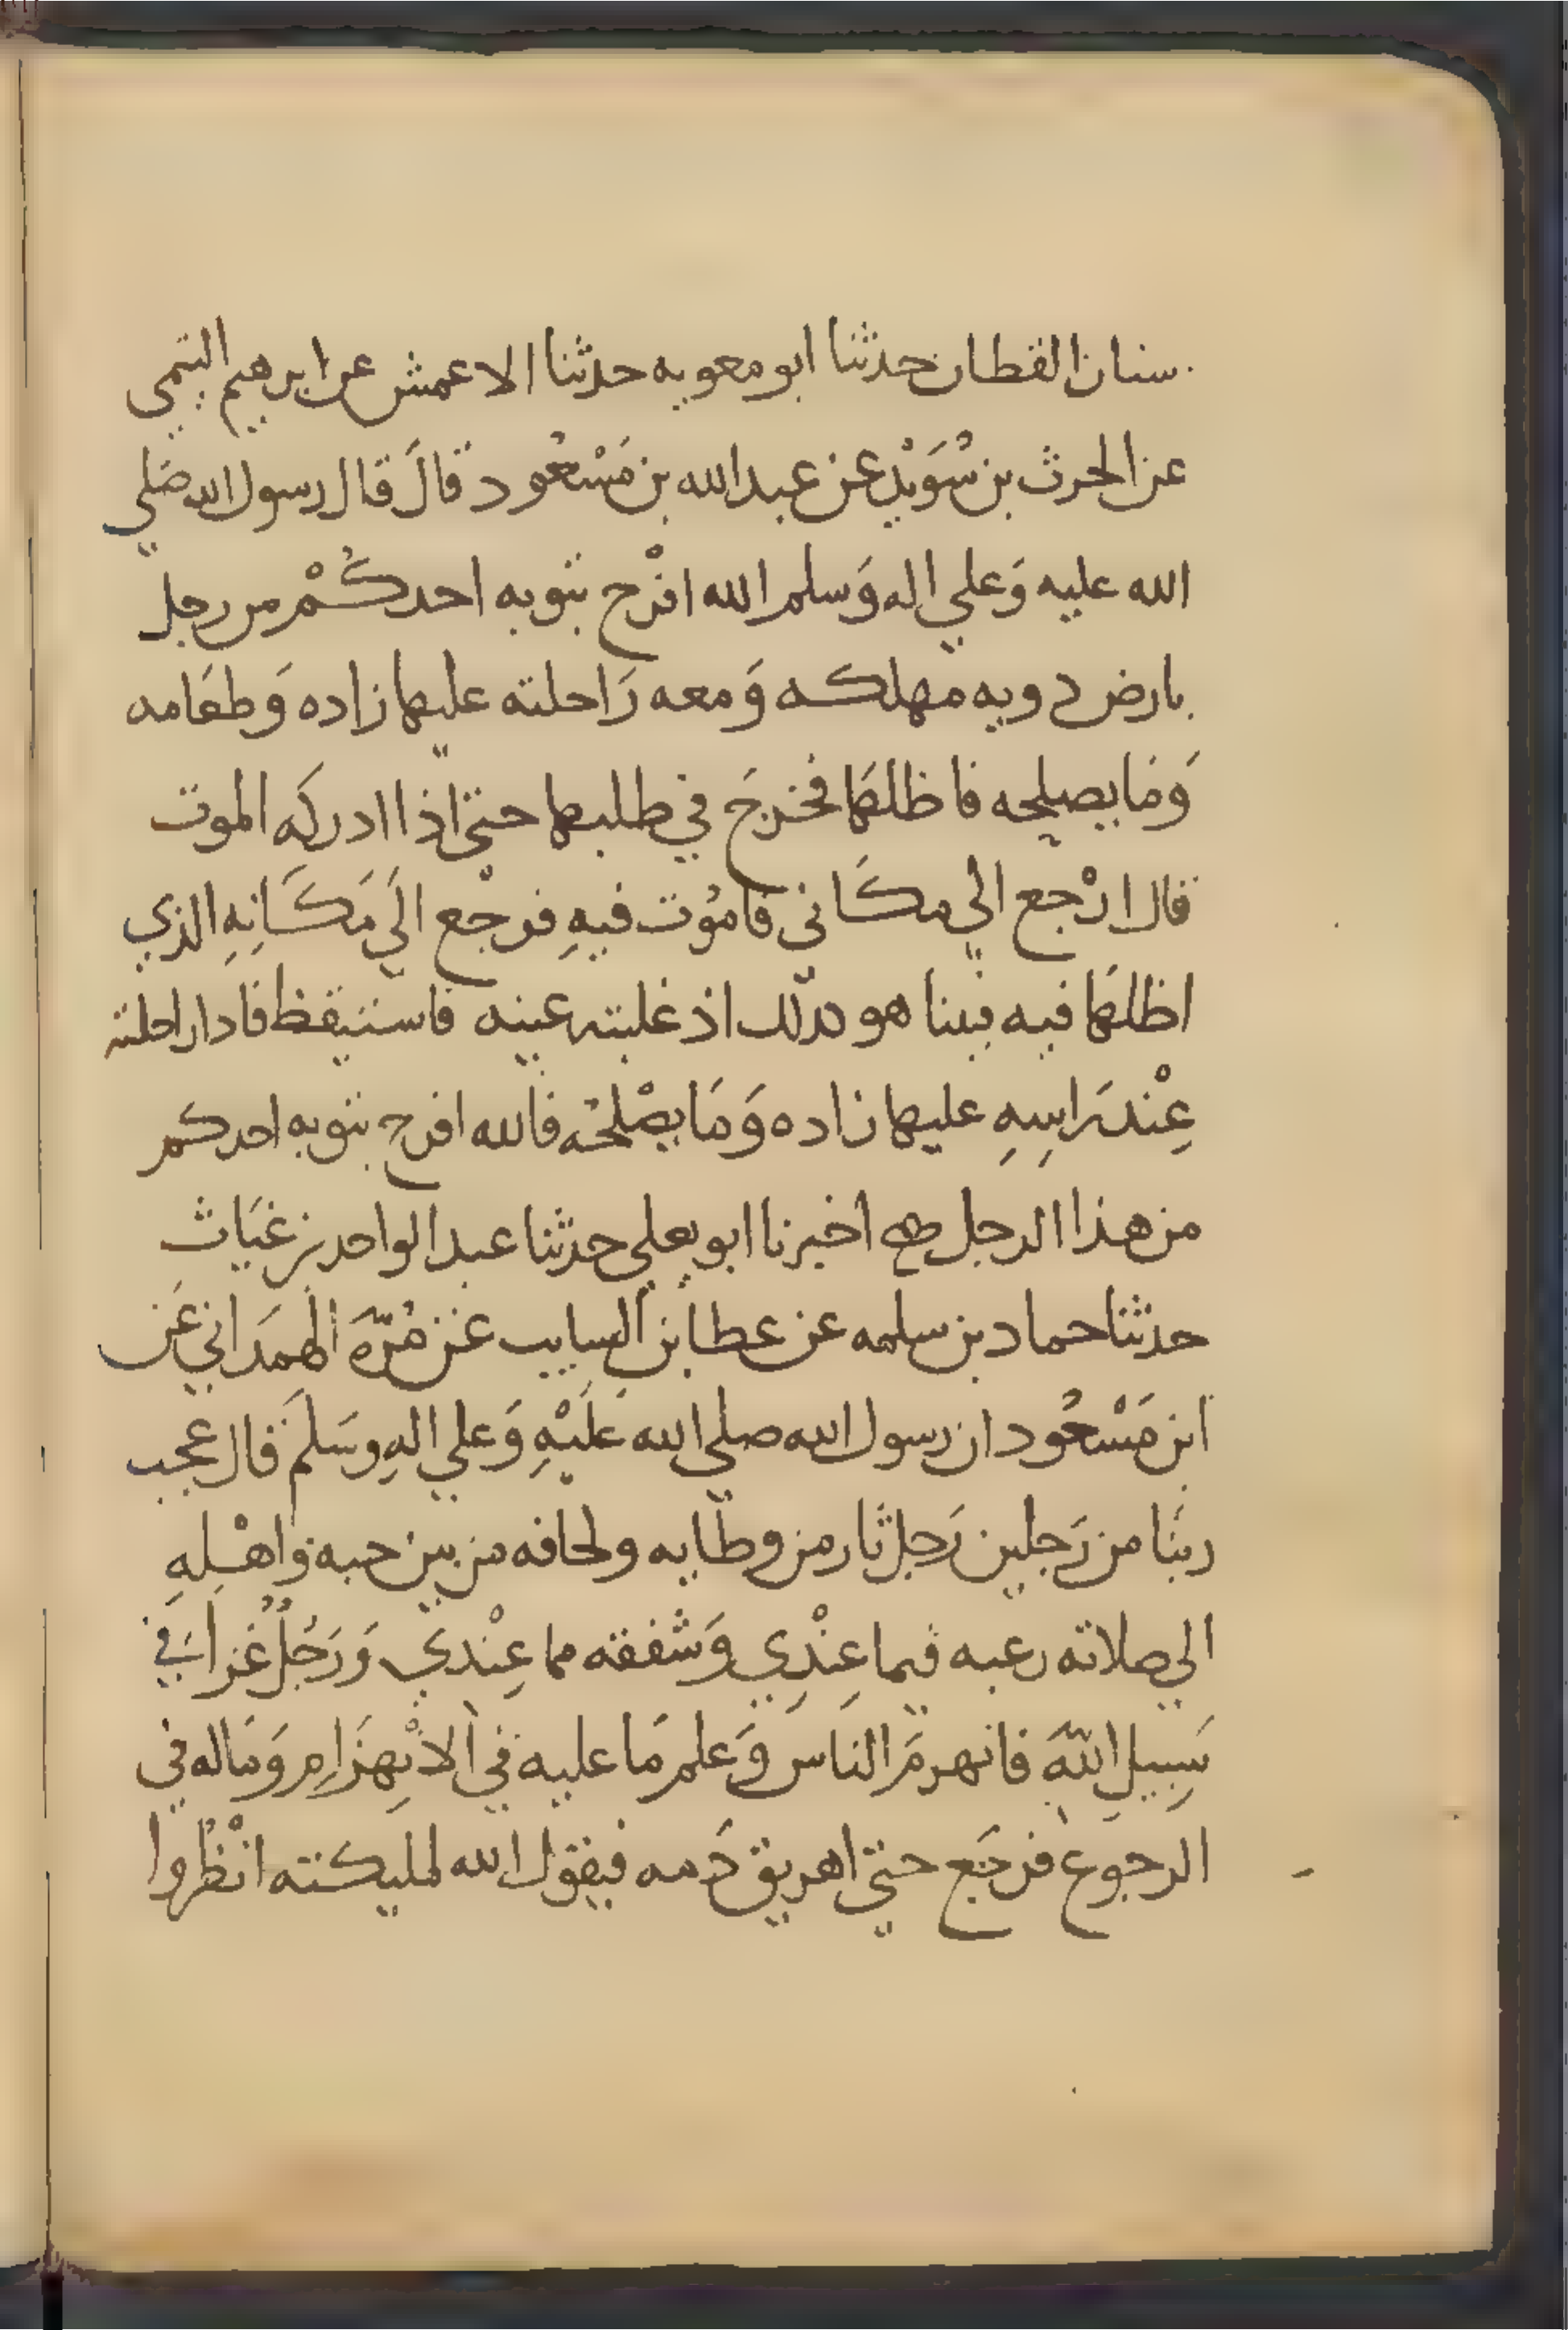 سنان القطان حدثنا ابو معويه حدثنا الاعمش عن ابرهيم التيمي
عن الحرث بن سُوَيْد عن عبد الله بن مَسْعُود قالَ قال رسول الله صَلي
الله عليه وَعلي اله وَسلم الله افْرح بتوبه احدكُمْ من رجل
بارض دويه مهلكه وَمعه رَاحلته عليها زاده وَطعَامه
وَمَا يصلحه فاظلهَا فخرجَ في طلبها حتي اذا ادركَه الموت
قال ارْجع الي مكَاني فامُوت فيهِ فرجْع الَي مَكَانِهِ الذي
اظلهَا فيه فبينا هو كذلك اذ غلبته عينه فاستيقظ فاذا راحلته
عِنْد رَاسِهِ عليها زاده وَمَا يصْلحُه فالله افرح بتوبه احدكم
من هذا الرجل صح اخبرنا ابو يعلي حدثنا عبد الواحد بن غيَاث
حدثنا حماد بن سلمه عن عطا بن السايب عن مُرّهَ الهمدَاني عَن
ابن مَسْعُود ان رسول الله صلي الله عَلَيْهِ وَعلي الهِ وسَلمَ قال عجب
ربنَا من رَجلين رَجل ثار من وطايه ولحافه من بين حبه وَاهْلِهِ
الي صلاته رغبه فيما عِنْدِي وَشفقه مما عِنْدي وَرَجُلٌ غزَا في
سَبِيلِ اللهَ فانهزمَ الناسَ وَعلم مَا عليه في الانْهِزَامِ وَمَاله في
الرجوع فرجَع حتي اهريق دَمه فيقول الله لمليكته انْظُروا